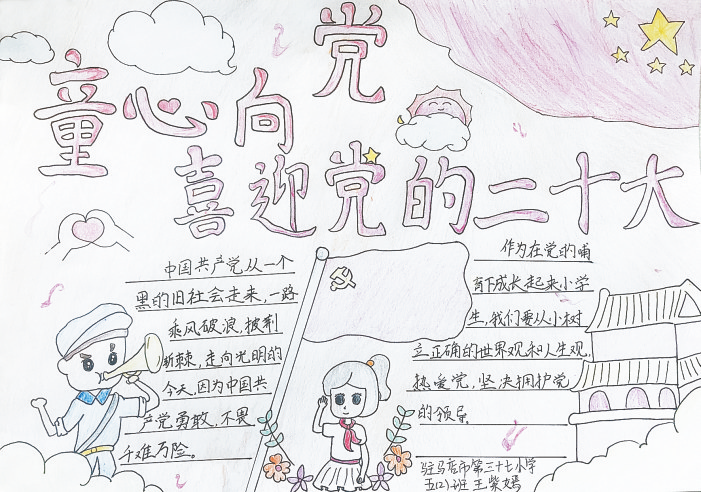 童心向党
喜迎党的二十大
中国共产党从一个
黑的旧社会走来,一路
乘风破浪,披荆
斩棘,走向光明的
今天,因为中国共
产党勇敢,不畏
千难万险。
作为在党的哺
育下成长起来小学
生,我们要从小树
立正确的世界观和人生观,
热爱党,坚决拥护党
的领导。
驻马店市第三十七小学
五(2)班 王紫嫣